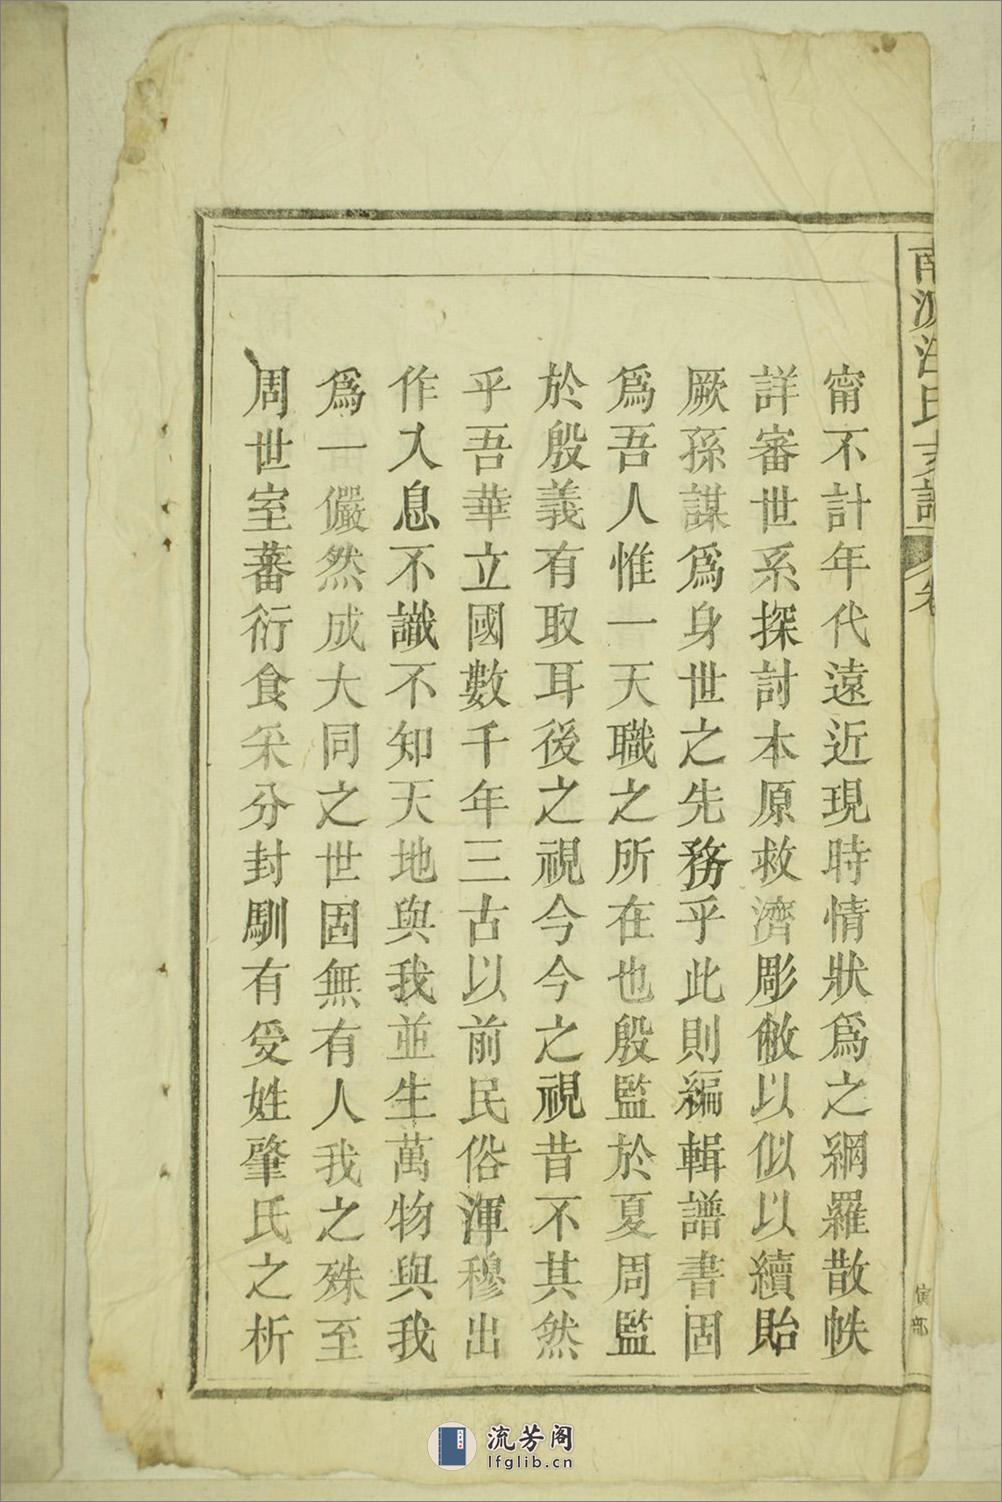 甯不計年代遠近現時情狀爲之網羅散帙
詳審世系探討本原救濟彫敝以似以續貽
厥孫謀爲身世之先務乎此則編輯譜書固
爲吾人惟一天職之所在也殷監於夏周監
於殷義有取耳後之視今今之視昔不其然
乎吾華立國數千年三古以前民俗渾穆出
作入息不識不知天地與我並生萬物與我
爲一儼然成大同之世固無有人我之殊至
周世室蕃衍食采分封馴有受姓肇氏之析
流芳阁
lfglib.cn